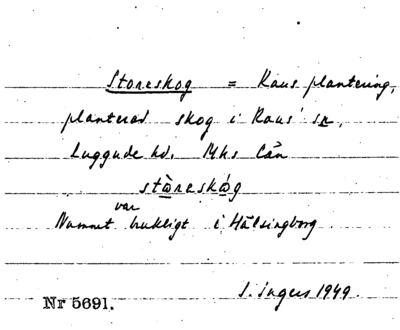 Storeskog = Raus plantering,
planterad skog i Raus sn,
Luggude hd. Mhs län
stòreskóg
Namnet var brukligt i Hälsingborg.
Nr 5691.
I. Ingers 1949.